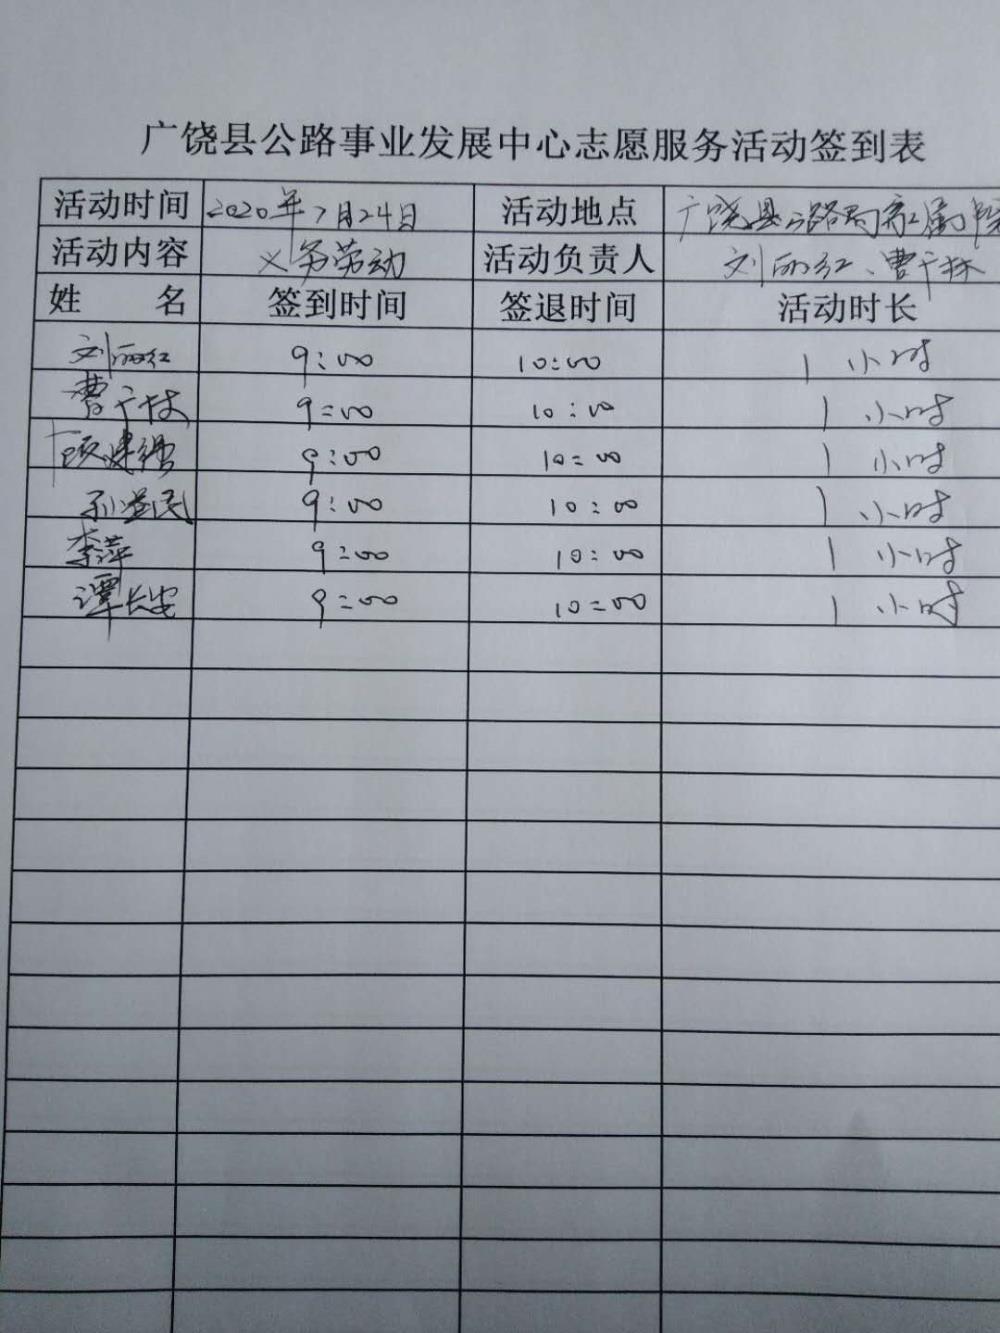 广饶县公路事业发展中心志愿服务活动签到表
活动时间 2020年7月24日 活动地点 广饶县公路局家属院
活动内容 义务劳动 活动负责人 刘丽红、曹广林
姓 名 签到时间 签退时间 活动时长
刘丽红 9:00 10:00 1小时
曹广林 9:00 10:00 1小时
顾建强 9:00 10:00 1小时
孙益民 9:00 10:00 1小时
李萍 9:00 10:00 1小时
谭长安 9:00 10:00 1小时